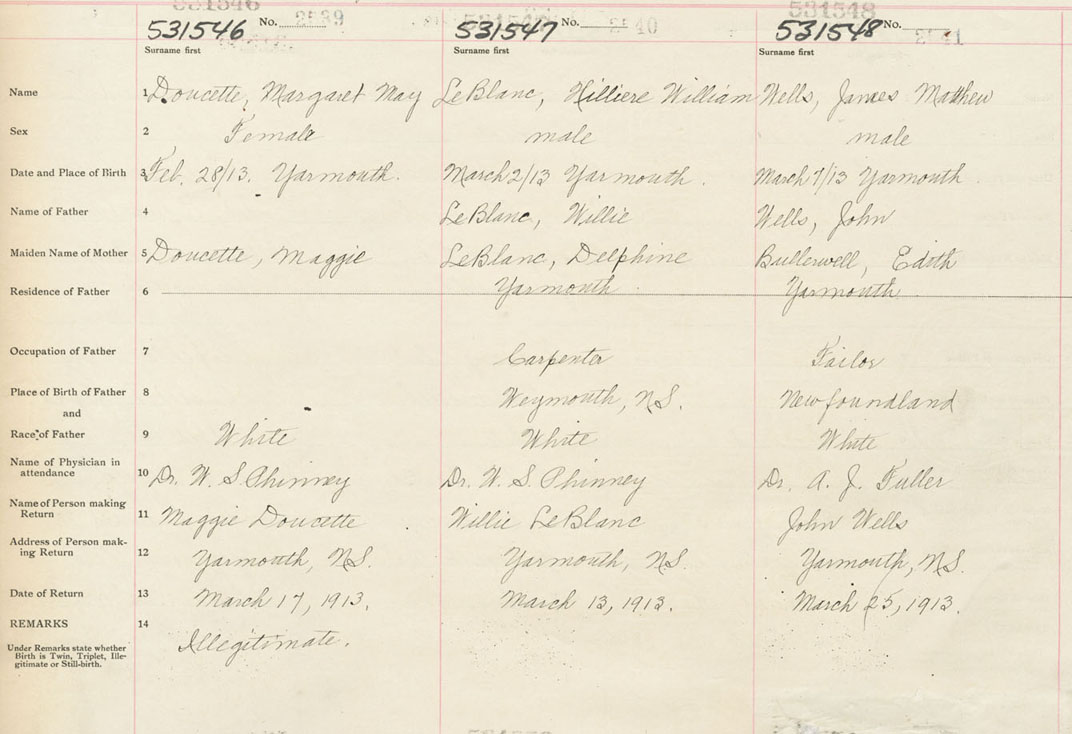 531546 531547 531548
531546 No. 2539 531547 No. 2540 531548 No. 2541
Surname first Surname first Surname first
Name 1 Doucette, Margaret May LeBlanc, Hilliere William Wells, James Matthew
Sex 2 Female male male
Date and Place of Birth 3 Feb. 28/13. Yarmouth. March 2/13 Yarmouth. March 7/13 Yarmouth
Name of Father 4 LeBlanc, Willie Wells, John
Maiden Name of Mother 5 Doucette, Maggie LeBlanc, Delphine Bullerwell, Edith
Residence of Father 6 Yarmouth Yarmouth
Occupation of Father 7 Carpenter Tailor
Place of Birth of Father 8 Weymouth, N.S. Newfoundland
and
Race of Father 9 White White White
Name of Physician in
attendance 10 Dr. W. S. Phinney Dr. W. S. Phinney Dr. A. J. Fuller
Name of Person making
Return 11 Maggie Doucette Willie LeBlanc John Wells
Address of Person mak-
ing Return 12 Yarmouth, N.S. Yarmouth, N.S. Yarmouth, N.S.
Date of Return 13 March 17, 1913. March 13, 1913. March 25, 1913.
REMARKS 14 Illegitimate.
Under Remarks state whether
Birth is Twin, Triplet, Ille-
gitimate or Still-birth.